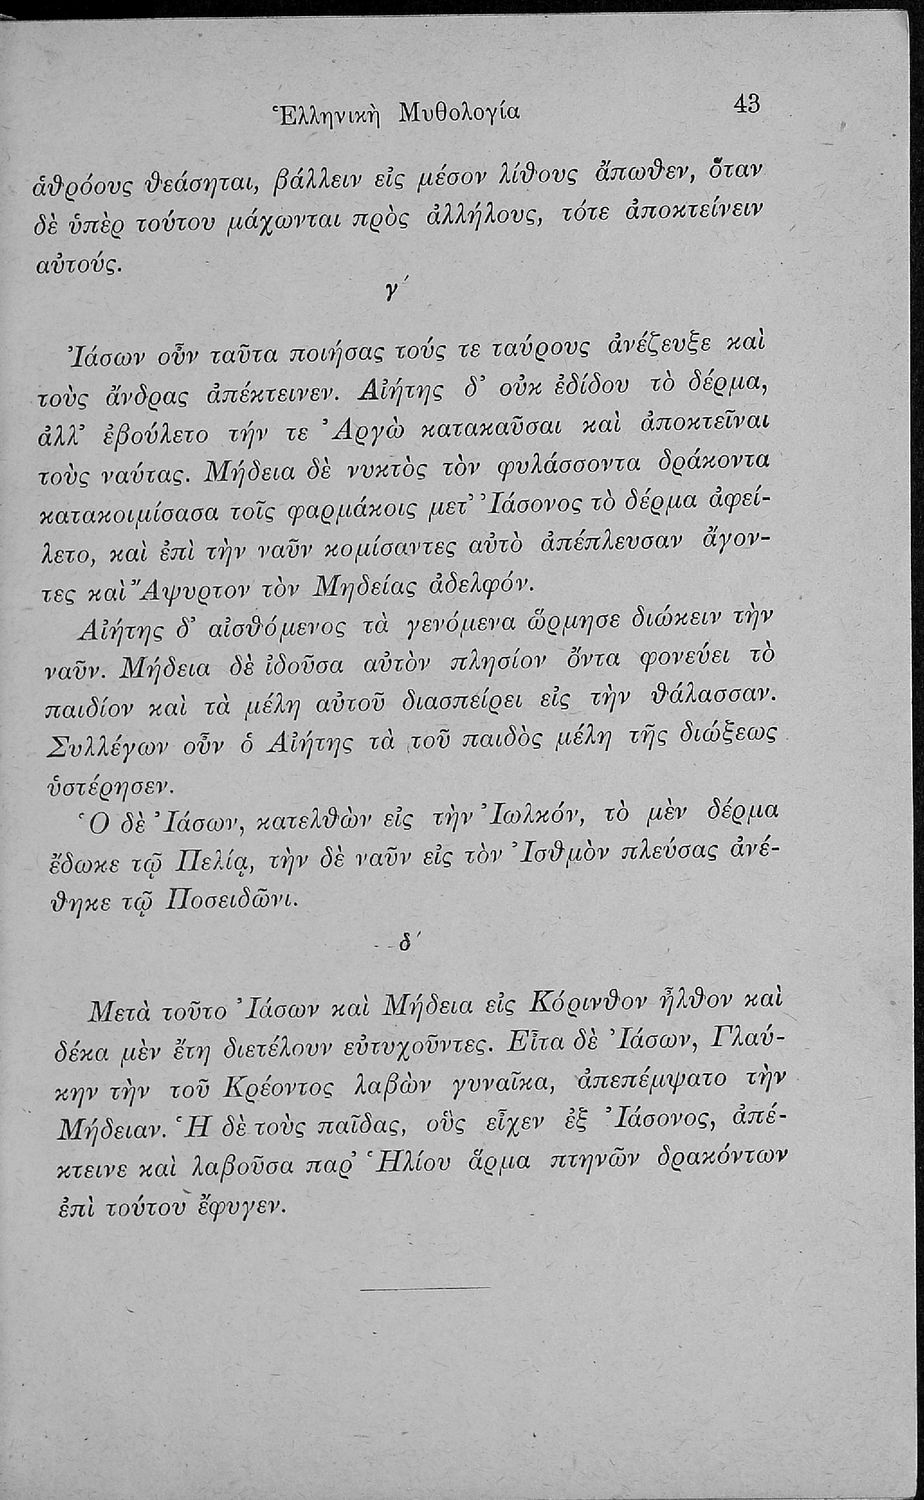 Ἑλληνικὴ Μυθολογία 43
ἀθρόους θεάσηται, βάλλειν εἰς μέσον λίθους ἄπωθεν, ὅταν
δὲ ὑπὲρ τούτου μάχωνται πρὸς ἀλλήλους, τότε ἀποκτείνειν
αὐτούς.
γ´
Ἰάσων οὖν ταῦτα ποιήσας τούς τε ταύρους ἀνέζευξε καὶ
τοὺς ἄνδρας ἀπέκτεινεν. Αἰήτης δ᾽ οὐκ ἐδίδου τὸ δέρμα,
ἀλλ᾽ ἐβούλετο τήν τε Ἀργὼ κατακαῦσαι καὶ ἀποκτεῖναι
τοὺς ναύτας. Μήδεια δὲ νυκτὸς τὸν φυλάσσοντα δράκοντα
κατακοιμίσασα τοῖς φαρμάκοις μετ᾽ Ἰάσονος τὸ δέρμα ἀφεί-
λετο, καὶ ἐπὶ τὴν ναῦν κομίσαντες αὐτὸ ἀπέπλευσαν ἄγον-
τες καὶ Ἄψυρτον τὸν Μηδείας ἀδελφόν.
Αἰήτης δ᾽ αἰσθόμενος τὰ γενόμενα ὥρμησε διώκειν τὴν
ναῦν. Μήδεια δὲ ἰδοῦσα αὐτὸν πλησίον ὄντα φονεύει τὸ
παιδίον καὶ τὰ μέλη αὐτοῦ διασπείρει εἰς τὴν θάλασσαν.
Συλλέγων οὖν ὁ Αἰήτης τὰ τοῦ παιδὸς μέλη τῆς διώξεως
ὑστέρησεν.
Ὁ δὲ Ἰάσων, κατελθὼν εἰς τὴν Ἰωλκόν, τὸ μὲν δέρμα
ἔδωκε τῷ Πελίᾳ, τὴν δὲ ναῦν εἰς τὸν Ἰσθμὸν πλεύσας ἀνέ-
θηκε τῷ Ποσειδῶνι.
δ´
Μετὰ τοῦτο Ἰάσων καὶ Μήδεια εἰς Κόρινθον ἦλθον καὶ
δέκα μὲν ἔτη διετέλουν εὐτυχοῦντες. Εἶτα δὲ Ἰάσων, Γλαύ-
κην τὴν τοῦ Κρέοντος λαβὼν γυναῖκα, ἀπεπέμψατο τὴν
Μήδειαν. Ἡ δὲ τοὺς παῖδας, οὓς εἶχεν ἐξ Ἰάσονος, ἀπέ-
κτεινε καὶ λαβοῦσα παρ᾽ Ἡλίου ἅρμα πτηνῶν δρακόντων
ἐπὶ τούτου ἔφυγεν.